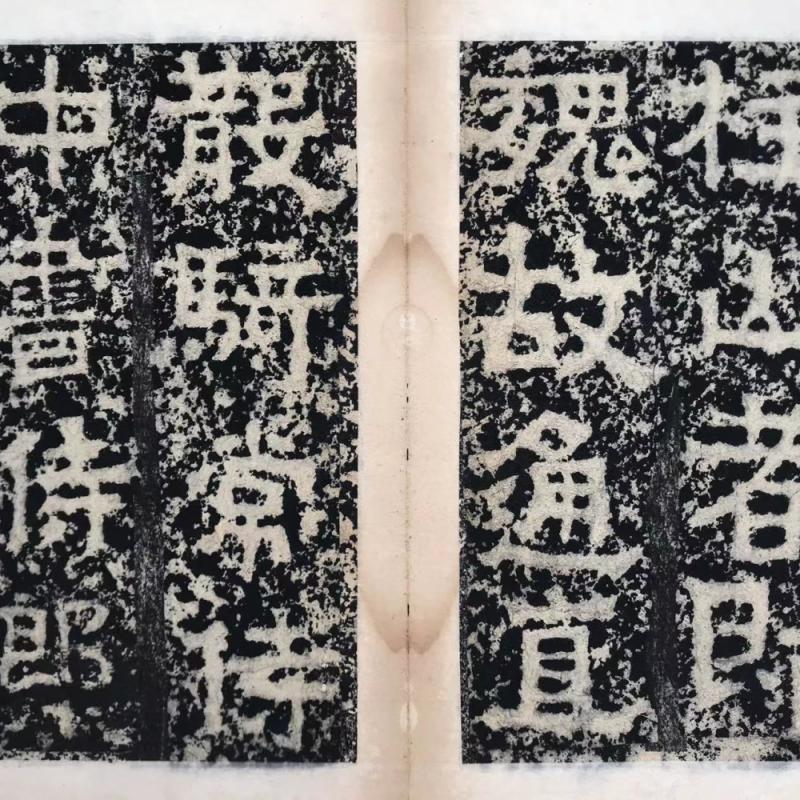 柱山者即
魏故通直
散騎常侍
中書侍郎